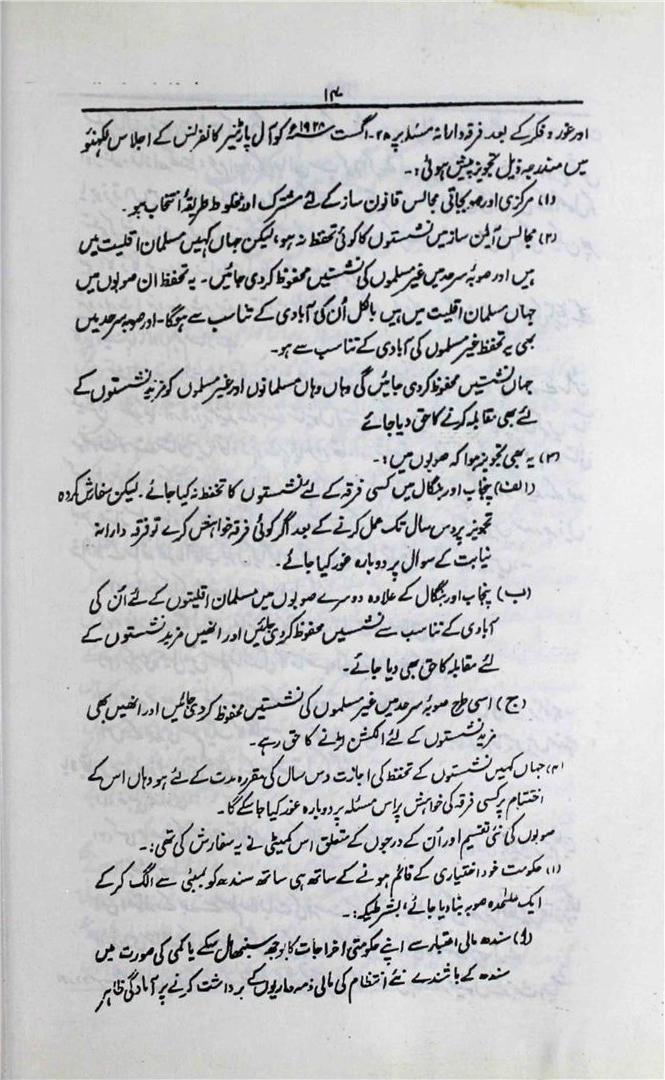 ۱۴
اور غور و فکر کے بعد فرقہ دارانہ مسئلہ پر ۲۸۔ اگست ۱۹۲۸ء کو آل پارٹیز کانفرنس کے اجلاس لکھنؤ
میں مندرجہ ذیل تجویز پیش ہوئی:۔
(۱) مرکزی اور صوبجاتی مجالس قانون ساز کے لئے مشترک اور مخلوط طریقۂ انتخاب ہو۔
(۲) مجالس آئین ساز میں نشستوں کا کوئی تحفظ نہ ہو، لیکن جہاں کہیں مسلمان اقلیت میں
ہیں اور صوبہ سرحد میں غیر مسلموں کی نشستیں محفوظ کردی جائیں۔ یہ تحفظ ان صوبوں میں
جہاں مسلمان اقلیت میں ہیں بالکل اُن کی آبادی کے تناسب سے ہوگا۔ اور صوبہ سرحد میں
بھی یہ تحفظ غیر مسلموں کی آبادی کے تناسب سے ہو۔
جہاں نشستیں محفوظ کردی جائیں گی وہاں وہاں مسلمانوں اور غیر مسلموں کو مزید نشستوں کے
لئے بھی مقابلہ کرنے کا حق دیا جائے
(۳) یہ بھی تجویز ہوا کہ صوبوں میں:۔
(الف) پنجاب اور بنگال میں کسی فرقہ کے لئے نشستوں کا تحفظ نہ کیا جائے۔ لیکن سفارش کردہ
تجویز پر دس سال تک عمل کرنے کے بعد اگر کوئی فرقہ خواہش کرے تو فرقہ دارانہ
نیابت کے سوال پر دوبارہ غور کیا جائے۔
(ب) پنجاب اور بنگال کے علاوہ دوسرے صوبوں میں مسلمان اقلیتوں کے لئے اُن کی
آبادی کے تناسب سے نشستیں محفوظ کردی جائیں اور انھیں مزید نشستوں کے
لئے مقابلہ کا حق بھی دیا جائے۔
(ج) اسی طرح صوبۂ سرحد میں غیر مسلموں کی نشستیں محفوظ کردی جائیں اور انھیں بھی
مزید نشستوں کے لئے الکشن لڑنے کا حق رہے۔
(۴) جہاں کہیں نشستوں کے تحفظ کی اجازت دس سال کی مقررہ مدت کے لئے ہو وہاں اس کے
اختتام پر کسی فرقہ کی خواہش پر اس مسئلہ پر دوبارہ غور کیا جاسکے گا۔
صوبوں کی نئی تقسیم اور اُن کے درجوں کے متعلق اس کمیٹی نے یہ سفارش کی تھی:۔
(۱) حکومت خود اختیاری کے قائم ہونے کے ساتھ ہی ساتھ سندھ کو بمبئی سے الگ کرکے
ایک علٰحدہ صوبہ بنا دیا جائے، بشرطیکہ:۔
(أ) سندھ مالی اعتبار سے اپنے حکومتی اخراجات کا بوجھ سنبھال سکے یا کمی کی صورت میں
سندھ کے باشندے نئے انتظام کی مالی ذمہ داریوں کے برداشت کرنے پر آمادگی ظاہر